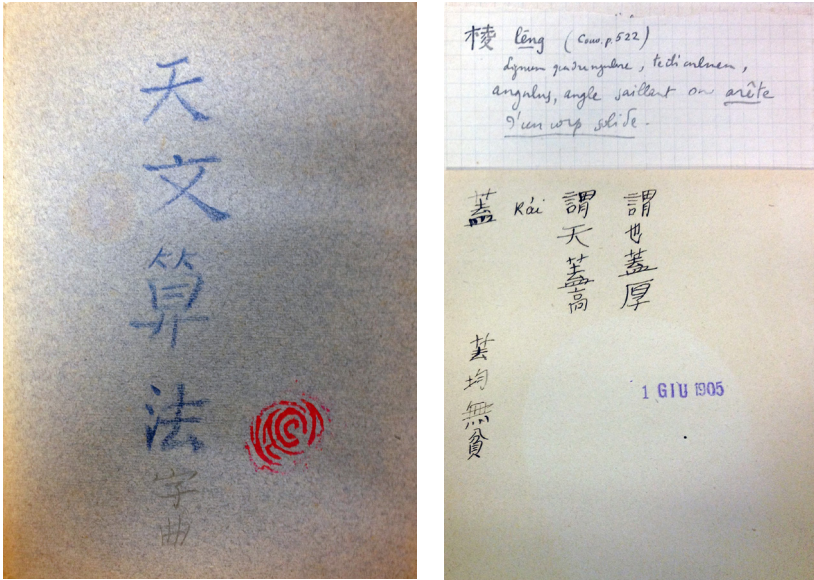 天文算法
字
棱 lēng (Couv. p. 522)
Lignum quadrangulare, tecti culmen,
angulus, angle saillant ou arête
d'un corps solide.
蓋 Kái
謂天蓋高
謂也蓋厚
蓋均無貧
1 GIU 1905